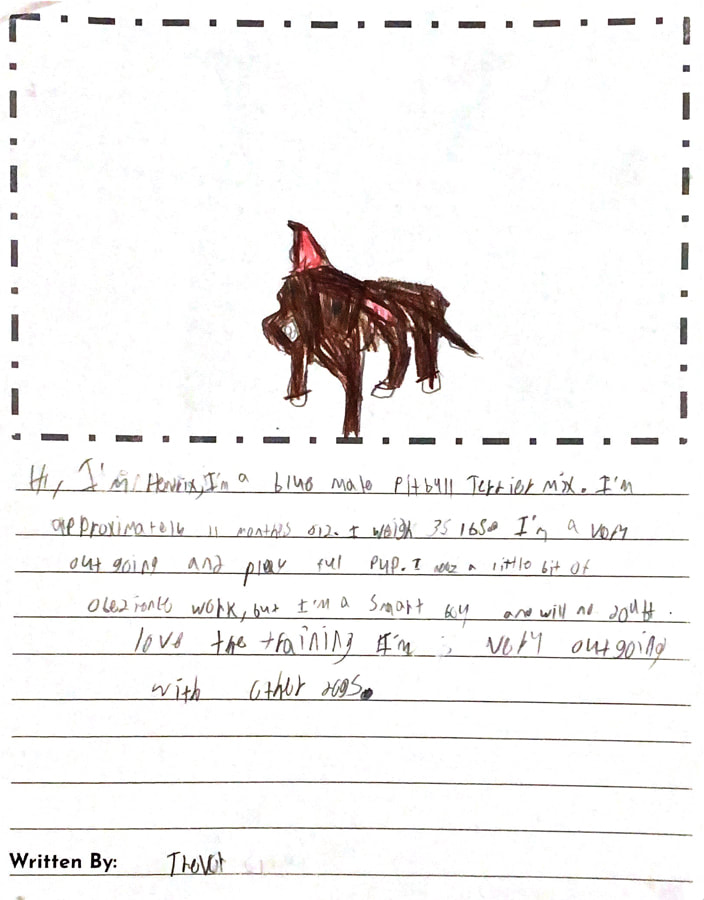 Hi, I'm Henrix, I'm a blue male Pitbull Terrier mix. I'm
approximatele 11 monthes old. I weigh 35 lbs. I'm a very
out going and play ful pup. I need a little bit of
obedience work, but I'm a smart boy and will no doubt.
love the training I'm very outgoing
with other dogs.
Written By: Trevor